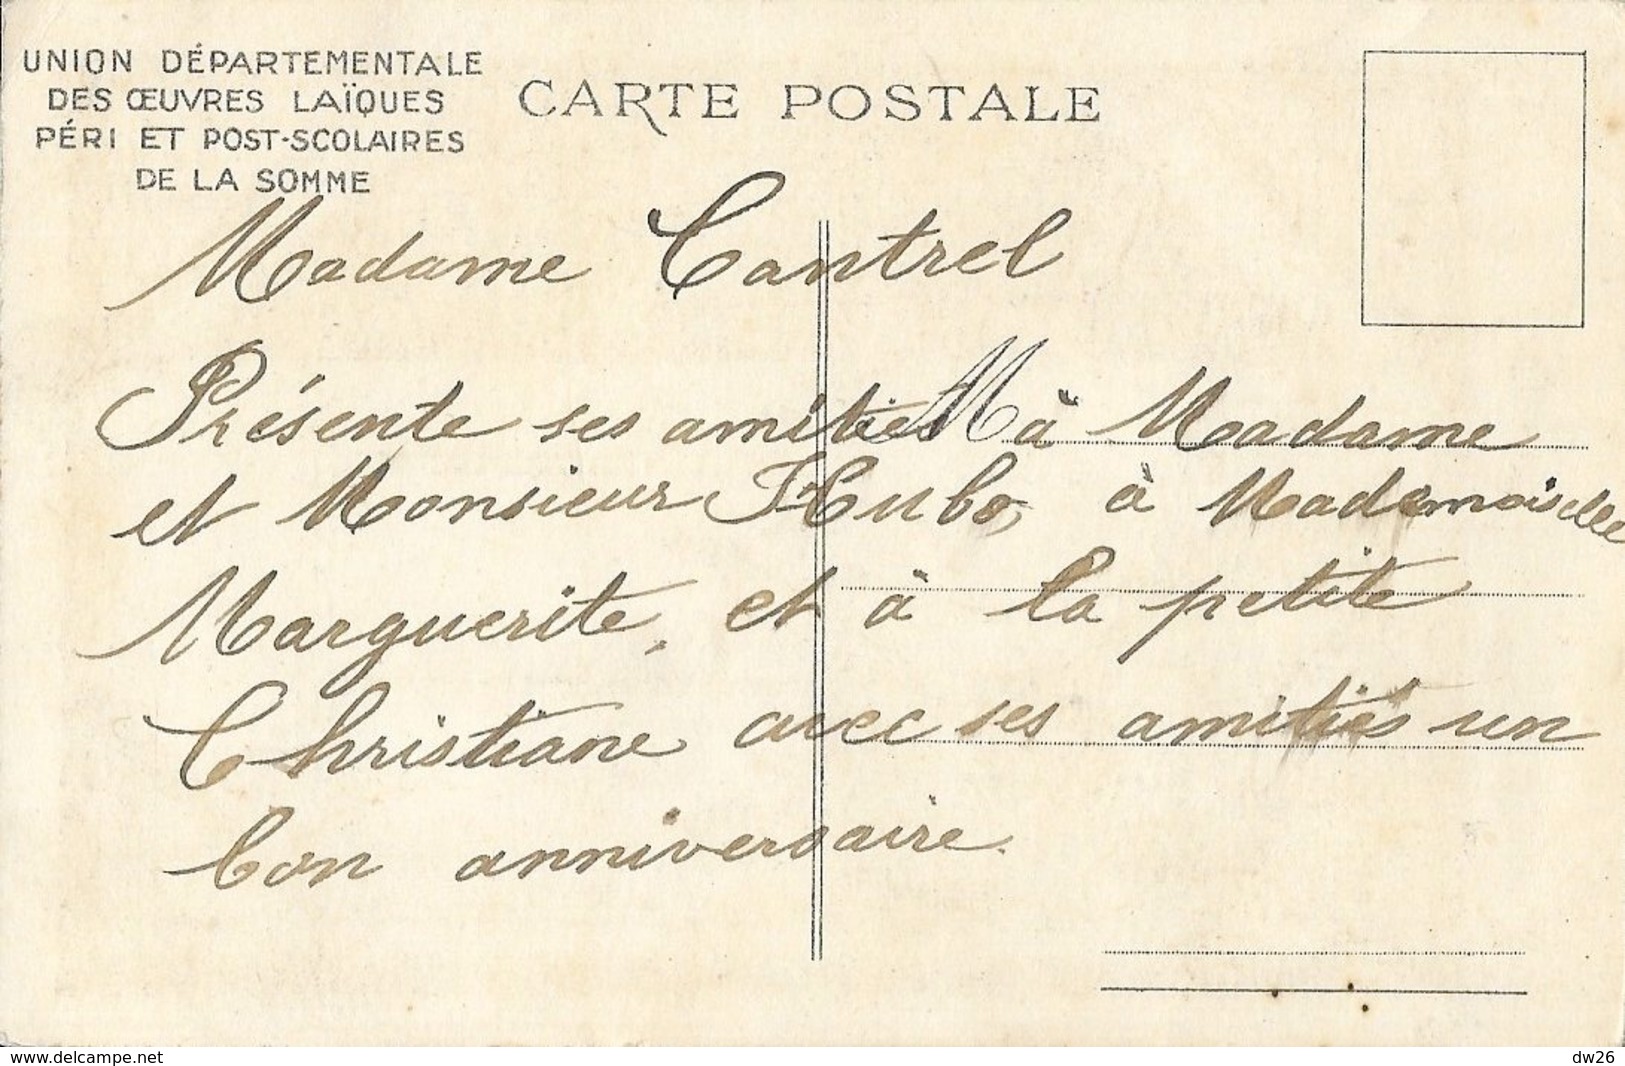 UNION DÉPARTEMENTALE
DES ŒUVRES LAÏQUES
PÉRI ET POST-SCOLAIRES
DE LA SOMME
CARTE POSTALE
Madame Cantrel
Présente ses amitiés à Madame
et Monsieur Hubo, à Mademoiselle
Marguerite, et à la petite
Christiane avec ses amitiés un
bon anniversaire.
www.delcampe.net
dw26